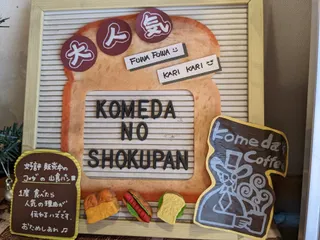 大人気
FUWA FUWA
KARI KARI
KOMEDA
NO
SHOKUPAN
Komeda's
Coffee
好評 販売中の
山食パン
1度 食べたら
人気の理由が
伝わるハズです。
おためしあれ♪